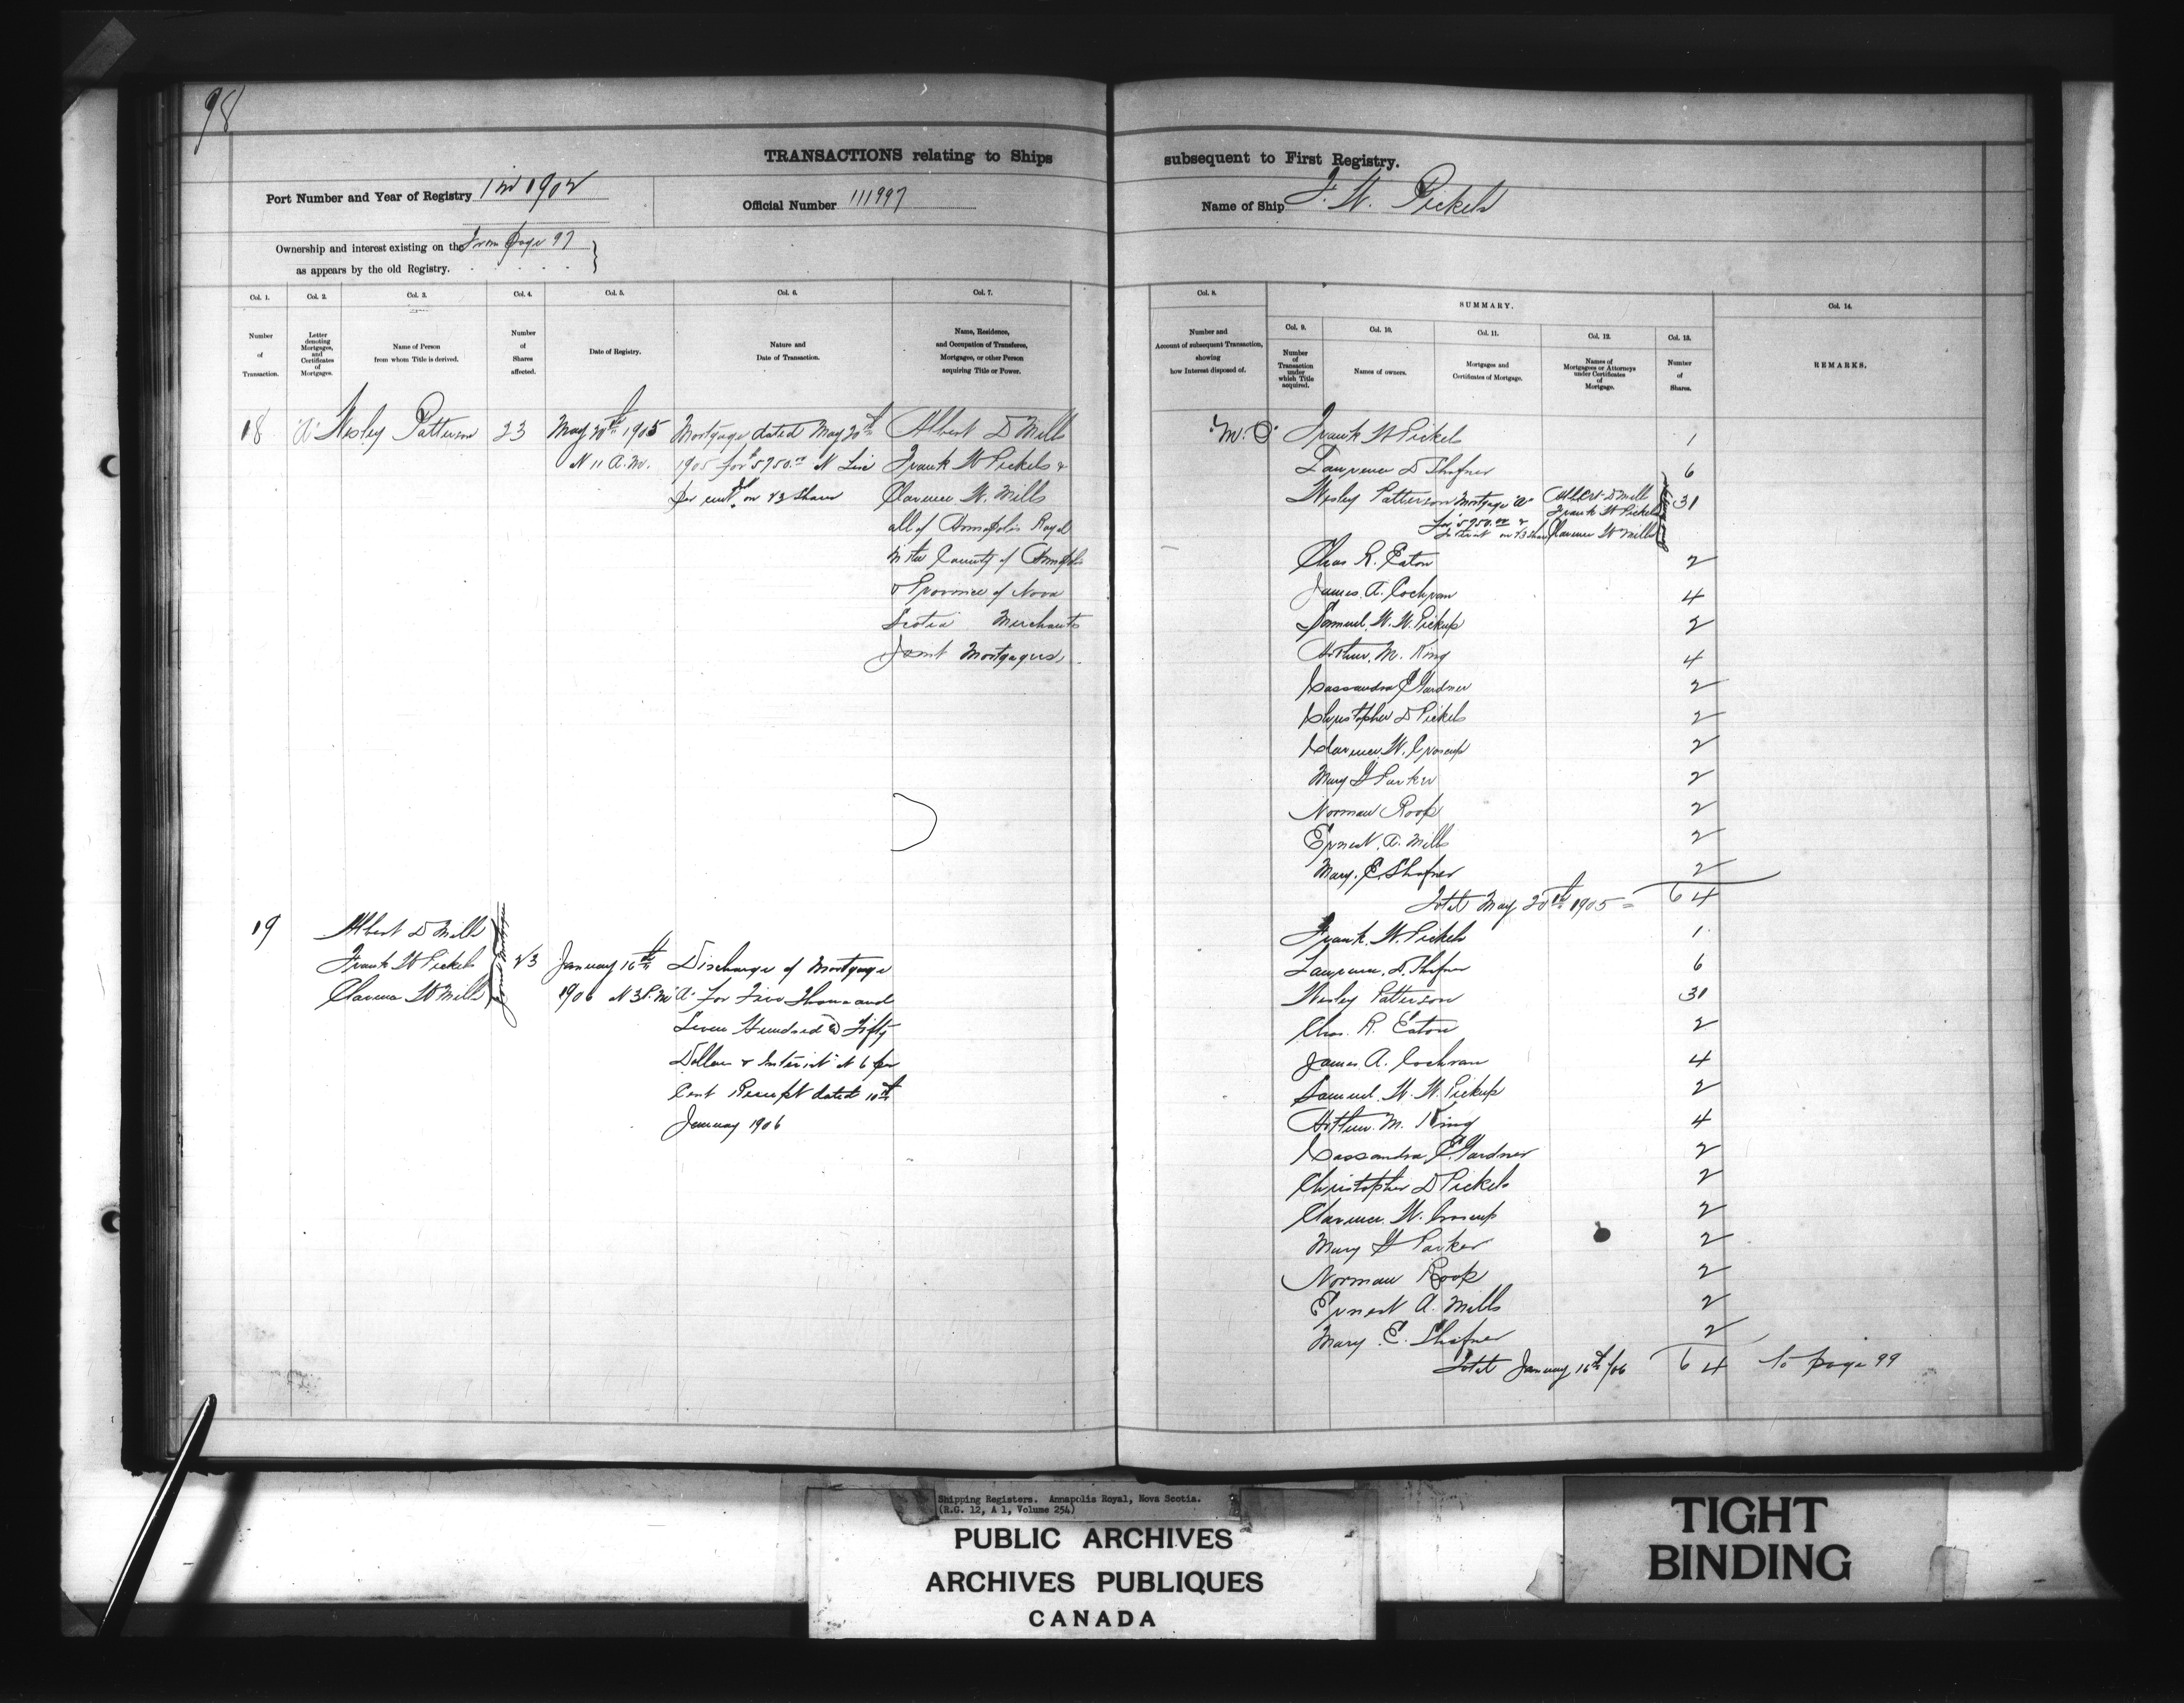 98
TRANSACTIONS relating to Ships
subsequent to First Registry.
Port Number and Year of Registry 1 in 1902
Official Number 111997
Name of Ship F. W. Pickels
Ownership and interest existing on the From page 97
as appears by the old Registry.
Col. 1.
Number
of
Transaction.
Col. 2.
Letter
denoting
Mortgages,
and
Certificates
of
Mortgages.
Col. 3.
Name of Person
from whom Title is derived.
Col. 4.
Number
of
Shares
affected.
Col. 5.
Date of Registry.
Col. 6.
Nature and
Date of Transaction.
Col. 7.
Name, Residence,
and Occupation of Transferee,
Mortgagee, or other Person
acquiring Title or Power.
Col. 8.
Number and
Account of subsequent Transaction,
showing
how Interest disposed of.
SUMMARY.
Col. 9.
Number
of
Transaction
under
which Title
acquired.
Col. 10.
Names of owners.
Col. 11.
Mortgages and
Certificates of Mortgage.
Col. 12.
Names of
Mortgagees or Attorneys
under Certificates
of
Mortgage.
Col. 13.
Number
of
Shares.
Col. 14.
REMARKS.
18 "A" Wesley Patterson 23
May 20th 1905
At 11 A.M.
Mortgage dated May 20th
1905 for $5750.00 At Six
per cent on 23 Shares
Albert D Mills
Frank W Pickels &
Clarence W. Mills
all of Annapolis Royal
in the County of Annapolis
& Province of Nova
Scotia Merchants
Joint Mortgagees.
Frank W Pickels 1
Lawrence D Shafner 6
Wesley Patterson 31
Mortgage "A"
for $5750.00 &
Interest on 23 Shares
Albert D Mills
Frank W Pickels
Clarence W Mills
Chas R. Eaton 2
James A. Cochran 4
Samuel W. W. Pickup 2
Arthur M. King 4
Cassandra E Gardner 2
Christopher D Pickels 2
Clarence W. Croscup 2
Mary G Parker 2
Norman Roop 2
Ernest A. Mills 2
Mary E. Shafner 2
Total May 20th 1905 = 64
19
Albert D Mills
Frank W Pickels
Clarence W Mills
Joint Mortgagees
23
January 16th
1906 At 3 P.M.
Discharge of Mortgage
"A" For Five Thousand
Seven Hundred & Fifty
Dollars & Interest at 6 per
Cent Receipt dated 10th
January 1906
Frank. W. Pickels 1
Lawrence. D. Shafner 6
Wesley Patterson 31
Chas. R. Eaton 2
James A. Cochran 4
Samuel. W. W. Pickup 2
Arthur. M. King 4
Cassandra E. Gardner 2
Christopher D Pickels 2
Clarence. W. Croscup 2
Mary G Parker 2
Norman Roop 2
Ernest A. Mills 2
Mary E. Shafner 2
Total January 16th /06 64 To page 99
Shipping Registers. Annapolis Royal, Nova Scotia.
(R.G. 12, A 1, Volume 254)
PUBLIC ARCHIVES
ARCHIVES PUBLIQUES
CANADA
TIGHT
BINDING